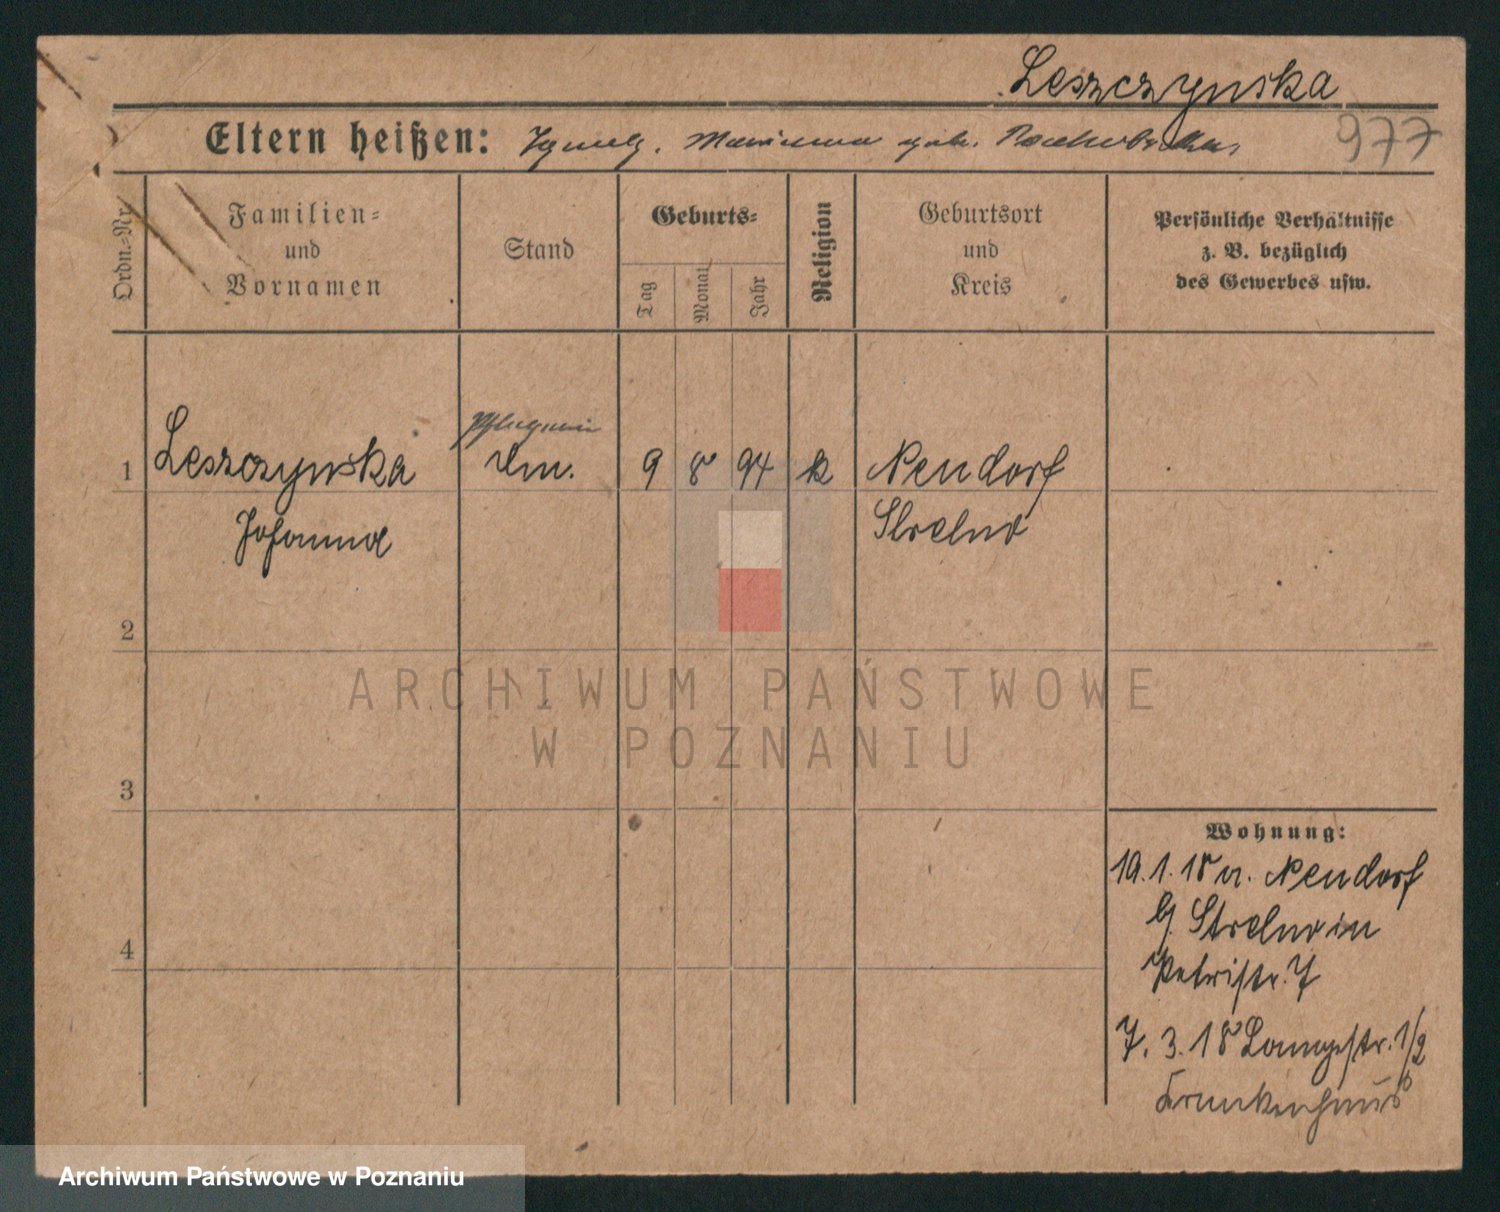 Leszczynska
Eltern heißen: Ignatz. Marianna geb.
977
Ordn.-Nr.
Familien-
und
Vornamen
Stand
Geburts-
Tag
Monat
Jahr
Religion
Geburtsort
und
Kreis
Persönliche Verhältnisse
z. B. bezüglich
des Gewerbes usw.
Pflegerin
1 Leszczynska 9 8 94 k Neudorf
Johanna Strelno
2
3
4
ARCHIWUM PAŃSTWOWE
W POZNANIU
Wohnung:
19.1.18 v. Neudorf
b. Strelno in
Petristr. 7
7. 3. 18 Langestr. 1/2
Krankenhaus
Archiwum Państwowe w Poznaniu